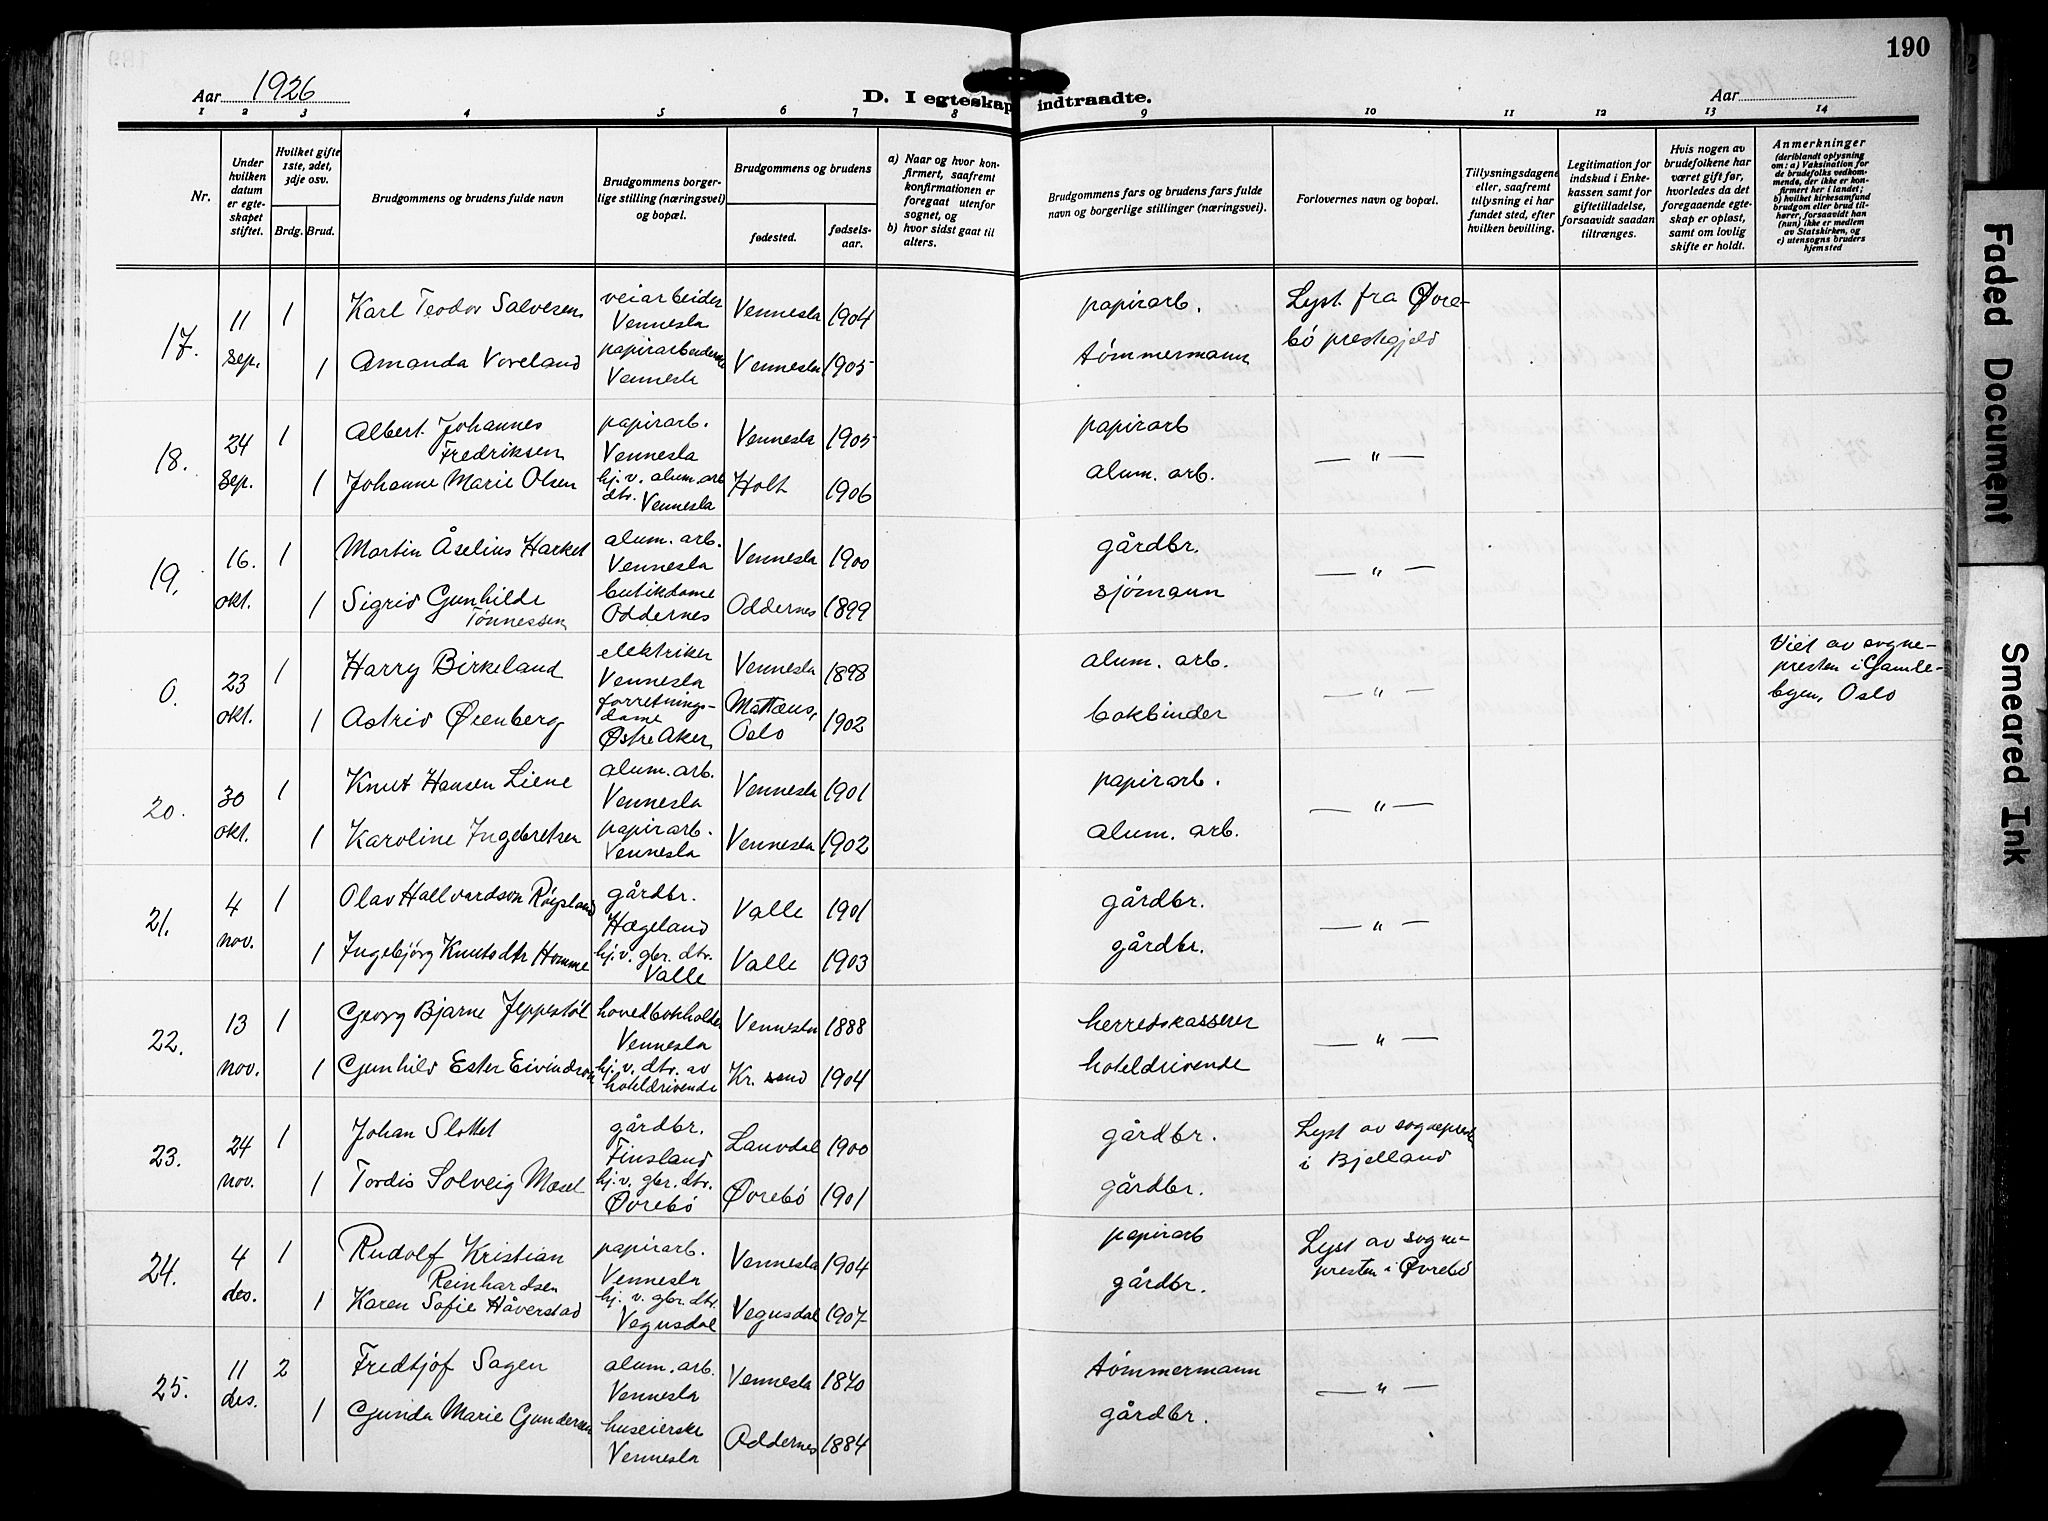 190
Aar 1926
D. I egteskap indtraadte.
Aar
1 2 3 4 5 6 7 8 9 10 11 12 13 14
Nr.
Under hvilken datum er egteskapet stiftet.
Hvilket gifte 1ste, 2det, 3dje osv.
Brdg. Brud.
Brudgommens og brudens fulde navn
Brudgommens borgerlige stilling (næringsvei) og bopæl.
Brudgommens og brudens
fødested.
fødselsaar.
a) Naar og hvor konfirmert, saafremt konfirmationen er foregaat utenfor sognet, og
b) hvor sidst gaat til alters.
Brudgommens fars og brudens fars fulde navn og borgerlige stillinger (næringsvei).
Forlovernes navn og bopæl.
Tillysningsdagene eller, saafremt tillysning ei har fundet sted, efter hvilken bevilling.
Legitimation for indskud i Enkekassen samt for giftetilladelse, forsaavidt saadan tiltrænges.
Hvis nogen av brudefolkene har været gift før, hvorledes da det foregaaende egteskap er opløst, samt om lovlig skifte er holdt.
Anmerkninger (deriblandt oplysning om: a) Vaksination for de brudefolks vedkommende, der ikke er konfirmert her i landet; b) hvilket kirkesamfund brudgom eller brud tilhører, forsaavidt han (hun) ikke er medlem av Statskirken, og c) utensogns bruders hjemsted
17. 11 sep. 1 Karl Teodor Salvesen veiarbeider Vennesla Vennesla 1904 papirarb. Lyst fra Øvrebø prestegjeld
1 Amanda Voreland papirarbeiderske Vennesla Vennesla 1905 tømmermann
18. 24 sep. 1 Albert Johannes Fredriksen papirarb. Vennesla Vennesla 1905 papirarb — " —
1 Johanne Marie Olsen hj. v. alum. arb dtr. Vennesla Holt 1906 alum. arb.
19. 16. okt. 1 Martin Åselius Harket alum. arb. Vennesla Vennesla 1900 gårdbr. — " —
1 Sigrid Gunhilde Tønnessen butikdame Oddernes Oddernes 1899 sjømann
0. 23 okt. 1 Harry Birkeland elektriker Vennesla Vennesla 1898 alum. arb. — " — Viet av sognepresten i Gamlebyen, Oslo
1 Astrid Øienberg forretningsdame Østre Aker Mattæus, Oslo 1902 bokbinder
20. 30 okt. 1 Knut Hansen Liene alum. arb. Vennesla Vennesla 1901 papirarb. — " —
1 Karoline Ingebretsen papirarb. Vennesla Vennesla 1902 alum. arb.
21. 4 nov. 1 Olav Hallvardson Røysland gårdbr. Hægeland Valle 1901 gårdbr. — " —
1 Ingebjørg Knutsdtr Homme hj. v. gbr. dtr. Valle Valle 1903 gårdbr.
22. 13 nov. 1 Georg Bjarne Jeppestøl hovedbokholder Vennesla Vennesla 1888 herredskasserer — " —
1 Gunhild Ester Eivindson hj. v. dtr. av hoteldrivende Kr. sand 1904 hoteldrivende
23. 24 nov. 1 Johan Slottet gårdbr. Finsland Lauvdal 1900 gårdbr. Lyst av sogneprest i Bjelland
1 Tordis Solveig Mæsel hj. v. gbr. dtr. Øvrebø Øvrebø 1901 gårdbr.
24. 4 des. 1 Rudolf Kristian Reinhardsen papirarb. Vennesla Vennesla 1904 papirarb Lyst av sognepresten i Øvrebø
1 Karen Sofie Håverstad hj. v. gbr. dtr. Vegusdal Vegusdal 1907 gårdbr.
25. 11 des. 2 Fredtjof Sagen alum. arb. Vennesla Vennesla 1870 tømmermann — " —
1 Gunda Marie Gundersen huseierske Vennesla Oddernes 1884 gårdbr.
Faded Document
Smeared Ink